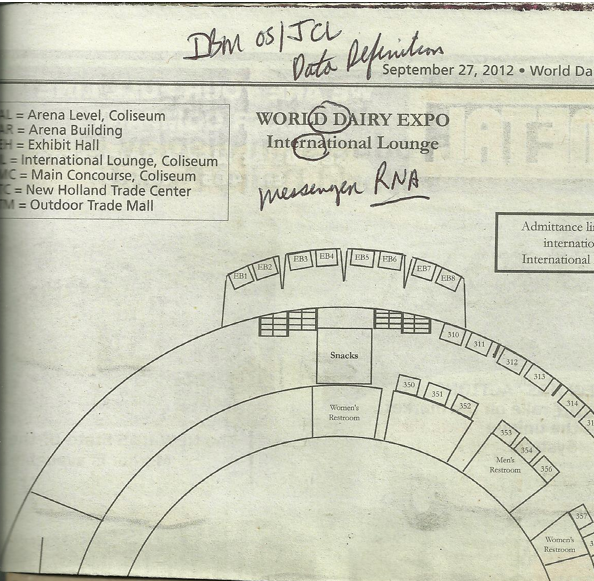 IBM OS/JCL
Data Definition
September 27, 2012 • World Da
AL = Arena Level, Coliseum
AR = Arena Building
EH = Exhibit Hall
IL = International Lounge, Coliseum
MC = Main Concourse, Coliseum
TC = New Holland Trade Center
TM = Outdoor Trade Mall
WORLD DAIRY EXPO
International Lounge
messenger RNA
Admittance li
internatio
International
EB1
EB2
EB3
EB4
EB5
EB6
EB7
EB8
310
311
312
313
314
31
Snacks
350
351
352
Women's
Restroom
353
354
356
Men's
Restroom
357
Women's
Restroom
3